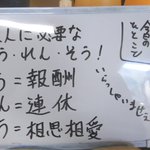 人に必要な
う・れん・そう!
う=報酬
ん=連休
う=相思相愛
ひとこと
いらっしゃいませ